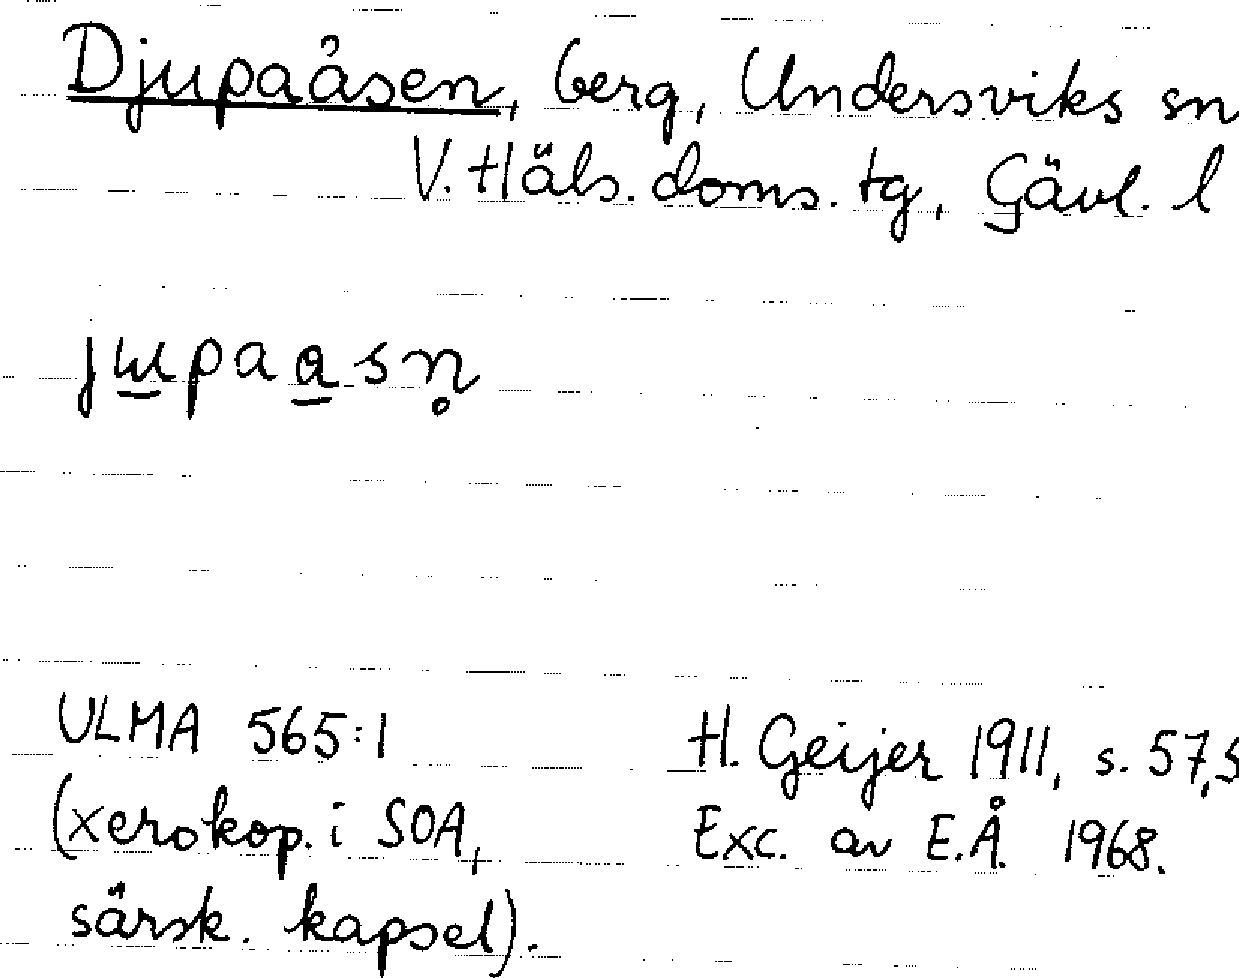 Djupaåsen, berg, Undersviks sn
V. Häls. doms. tg, Gävl. l
jɯ̲paa̲sn̥
ULMA 565:1
H. Geijer 1911, s. 57,5
(xerokop. i SOA,
Exc. av E.Å. 1968.
särsk. kapsel).